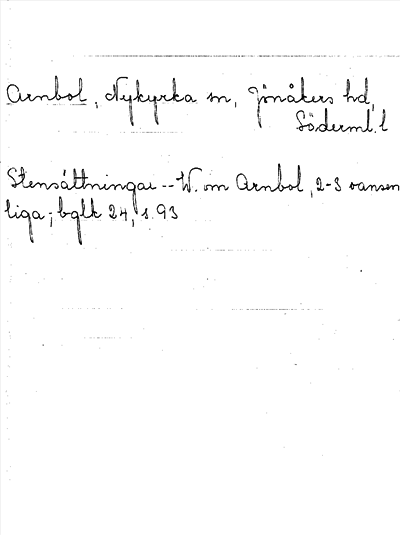 Arnbol, Nykyrka sn, Jönåkers hd,
Söderml. l
Stensättningar -- W. om Arnbol, 2-3 oansen
liga; bglk 24, s. 93